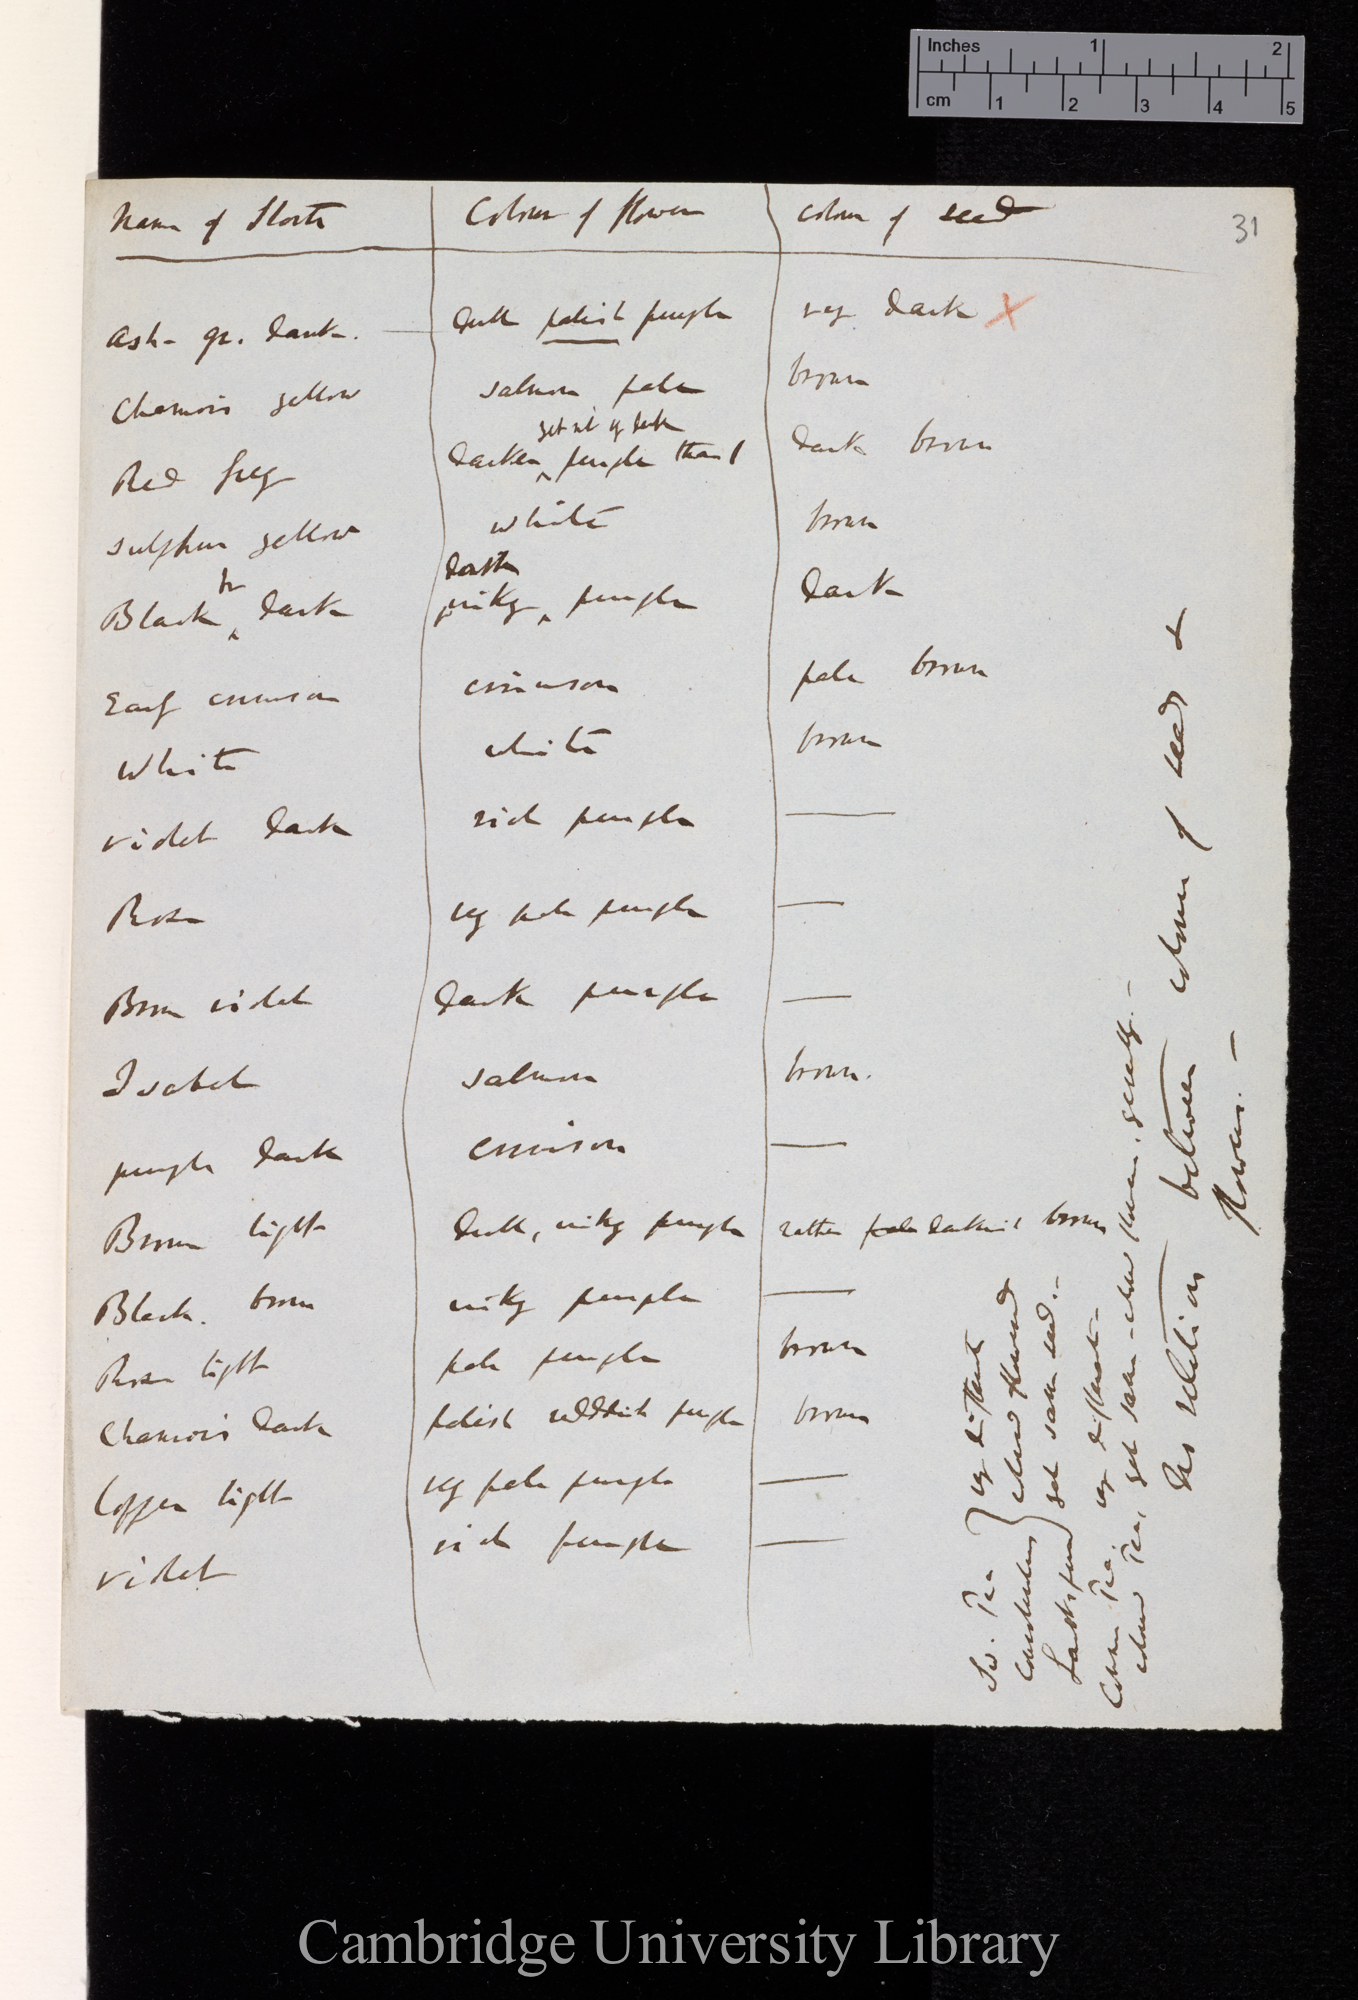 Inches 1 2
cm 1 2 3 4 5
31
Name of Stocks Colour of flowers Colour of seed
Ash-gr. dark. dull palish purple very dark X
Chamois yellow salmon pale brown
Red grey darker purple than 1 dark brown
Sulphur yellow white brown
Black br dark inky purple dark
Early crimson crimson pale brown
White white brown
violet dark rich purple —
Rose very pale purple —
Brown violet dark purple —
Isabel salmon brown.
purple dark crimson —
Brown light dull, inky purple rather pale darkish brown
Black. brown inky purple —
Rose light pale purple brown
Chamois dark palish reddish purple brown
Copper light very pale purple —
violet rich purple —
Sw. Pea } very different
Convolvulus } coloured flowered
Larkspur } got same seed.—
Common Pea. very different—
coloured Peas, got same-coloured flower, generally.—
No relation between colour of seeds &
flowers.—
Cambridge University Library